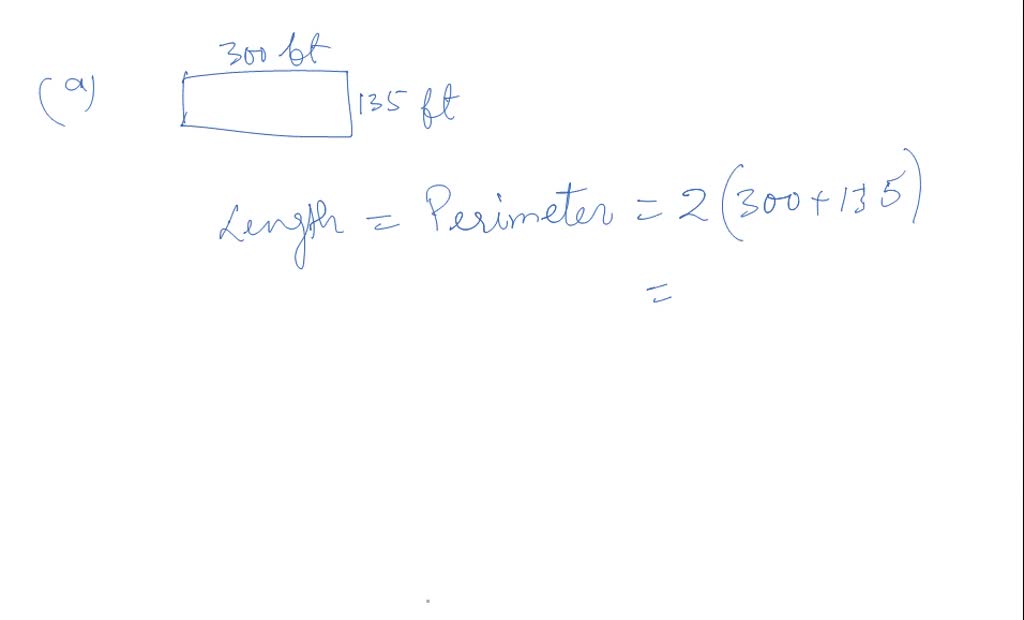 300 ft
(a)
135 ft
Length = Perimeter = 2(300+135)
=